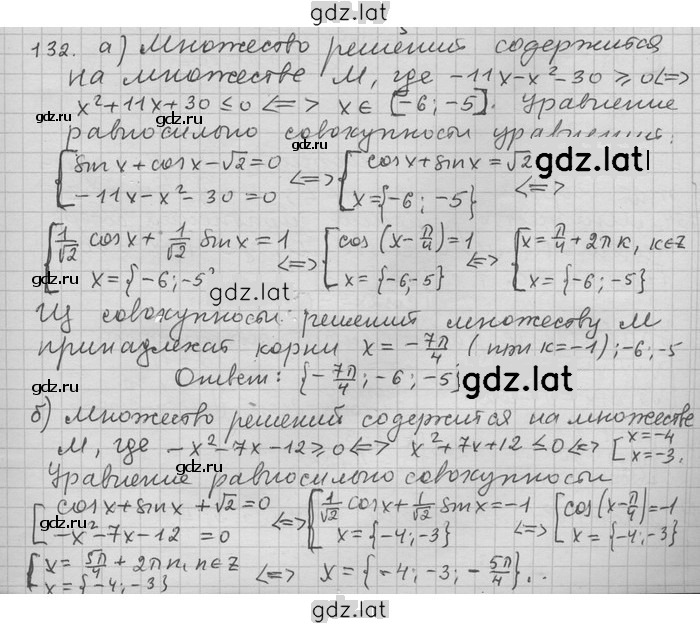 gdz.lat
132. а) Множество решений содержится
на множестве M, где -11x-x²-30 ≥ 0 <=>
gdz.lat
x²+11x+30 ≤ 0 <=> x ∈ [-6; -5]. Уравнение
gdz.lat
равносильно совокупности уравнений:
[ sin x + cos x - √2 = 0
-11x - x² - 30 = 0 <=> [ cos x + sin x = √2
x = {-6; -5} <=>
gdz.lat
[ 1/√2 cos x + 1/√2 sin x = 1
x = {-6; -5} <=> [ cos (x - π/4) = 1
x = {-6; -5} <=> [ x = π/4 + 2πk, k∈Z
x = {-6; -5}
gdz.lat
gdz.lat
gdz.lat
Из совокупности решений множеству M
gdz.lat
принадлежат корни x = -7π/4 (при k=-1); -6; -5
Ответ: {-7π/4; -6; -5}
gdz.lat
б) Множество решений содержится на множестве
M, где -x²-7x-12 ≥ 0 <=> x²+7x+12 ≤ 0 <=> [ x=-4
x=-3.
gdz.lat
gdz.lat
Уравнение равносильно совокупности
[ cos x + sin x + √2 = 0
-x² - 7x - 12 = 0 <=> [ 1/√2 cos x + 1/√2 sin x = -1
x = {-4; -3} <=> [ cos (x - π/4) = -1
x = {-4; -3}
gdz.lat
gdz.lat
[ x = 5π/4 + 2πn, n∈Z
x = {-4; -3} <=> x = {-4; -3; -5π/4}.
gdz.lat
gdz.lat
gdz.lat